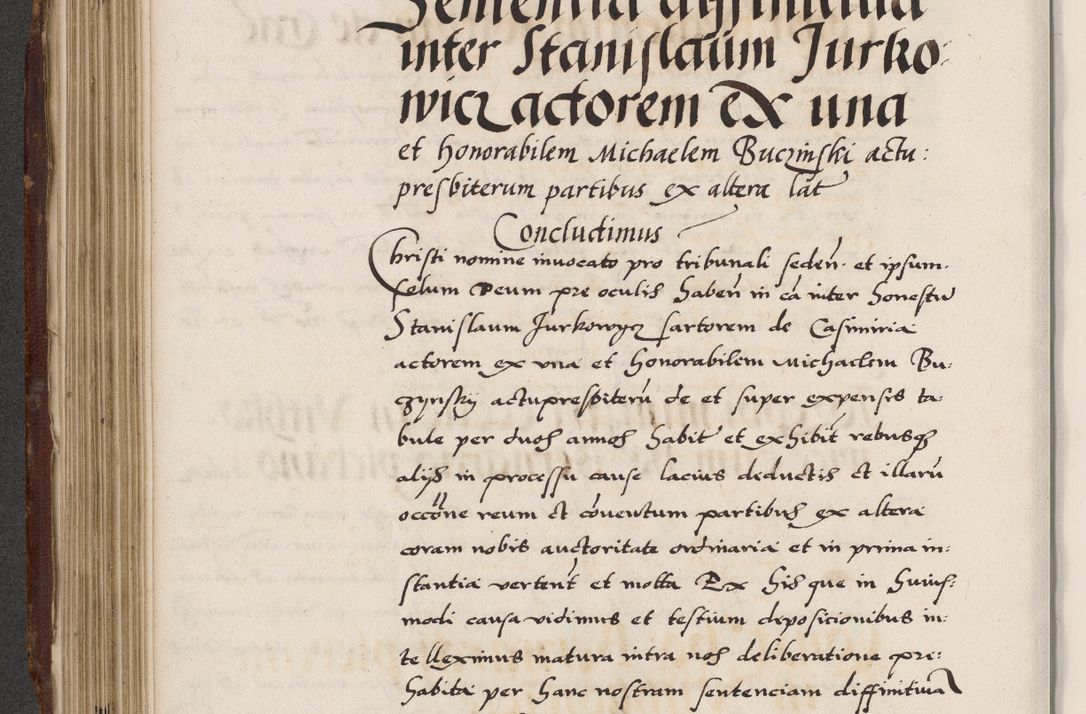 Sententia diffinitiva
inter Stanislaum Jurko:
wicz actorem ex una
et honorabilem Michaelem Buczinski actu:
presbiterum partibus ex altera lat
Concludimus
Christi nomine invocato pro tribunali seden̄. et ipsum.
solum Deum pre oculis haben̄ in cā inter honestū
Stanislaum Jurkowycz sartorem de Casimiria
actorem ex una et honorabilem Michaelem Bu:
czynskij actupresbiterū de et super expensis ta:
bule per duos annos habit et exhibit rebusq3
alijs in processu cause lacius deductis et illarū
occōne reum et cōventum partibus ex altera
coram nobis auctoritate ordinaria et in prima in:
stantia vertent et mota Ex his que in huius:
modi causa vidimus et testium deposicionibus in:
telleximus matura intra nos deliberatione pre:
habita per hanc nostram sentenciam diffinitiva